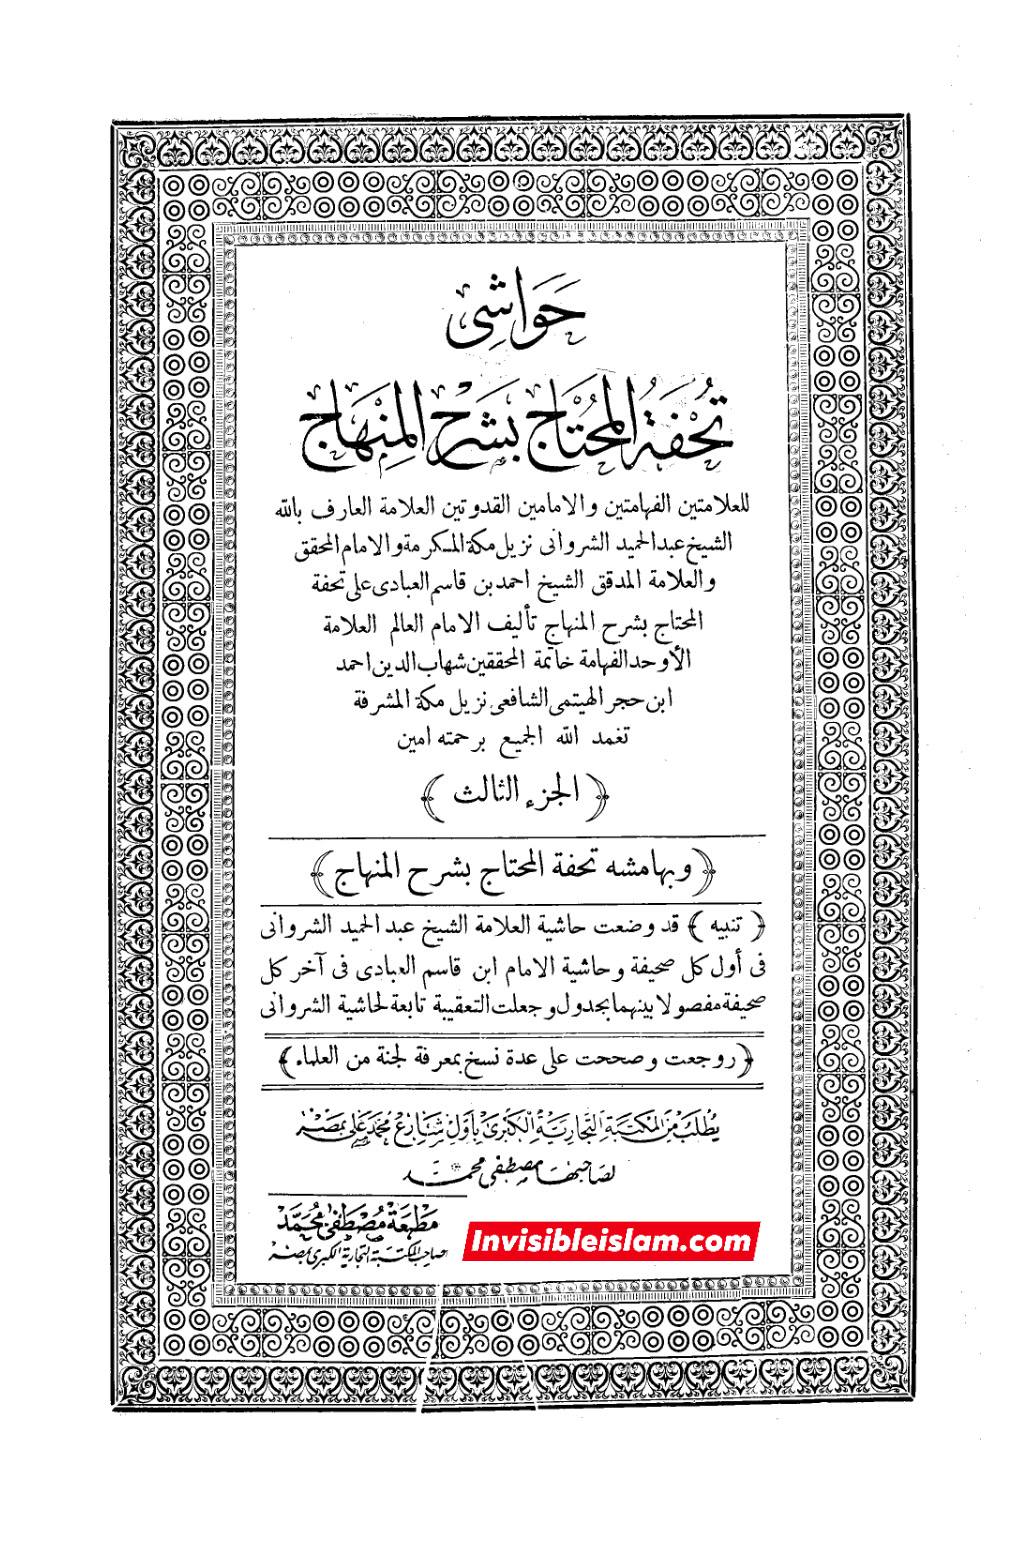 حَوَاشِى
تُحْفَةُ المُحْتَاجِ بِشَرْحِ المِنْهَاجِ
للعلامتين الفهامتين والامامين القدوتين العلامة العارف بالله
الشيخ عبد الحميد الشروانى نزيل مكة المكرمة والامام المحقق
والعلامة المدقق الشيخ احمد بن قاسم العبادى على تحفة
المحتاج بشرح المنهاج تأليف الامام العالم العلامة
الأوحد الفهامة خاتمة المحققين شهاب الدين احمد
ابن حجر الهيتمى الشافعى نزيل مكة المشرفة
تغمد الله الجميع برحمته امين
﴿ الجزء الثالث ﴾
﴿ وبهامشه تحفة المحتاج بشرح المنهاج ﴾
﴿ تنبيه ﴾ قد وضعت حاشية العلامة الشيخ عبد الحميد الشروانى
فى أول كل صحيفة وحاشية الامام ابن قاسم العبادى فى آخر كل
صحيفة مفصولا بينهما بجدول وجعلت التعقيبة تابعة لحاشية الشروانى
﴿ روجعت وصححت على عدة نسخ بمعرفة لجنة من العلماء ﴾
يُطلَبُ مِنَ المَكتَبَةِ التِّجَاريَّةِ الكُبرَى بِأوَّلِ شَارِعِ مُحَمَّد عَلى بمِصْر
لصاحبها مصطفى محمد
مَطبَعَة مُصْطَفى مُحَمَّد
صاحب المكتبة التجارية الكبرى بمصر
Invisibleislam.com